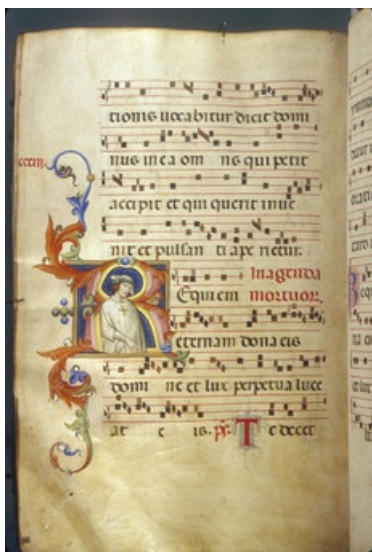 tionis uocabitur dicit domi
nus in ea om nis qui petit
accipit et qui querit inue
nit et pulsan ti ape rietur.
In agenda
R Equiem mortuor.
eternam dona eis
domi ne et lux perpetua luce
at e is. ps. T e decet